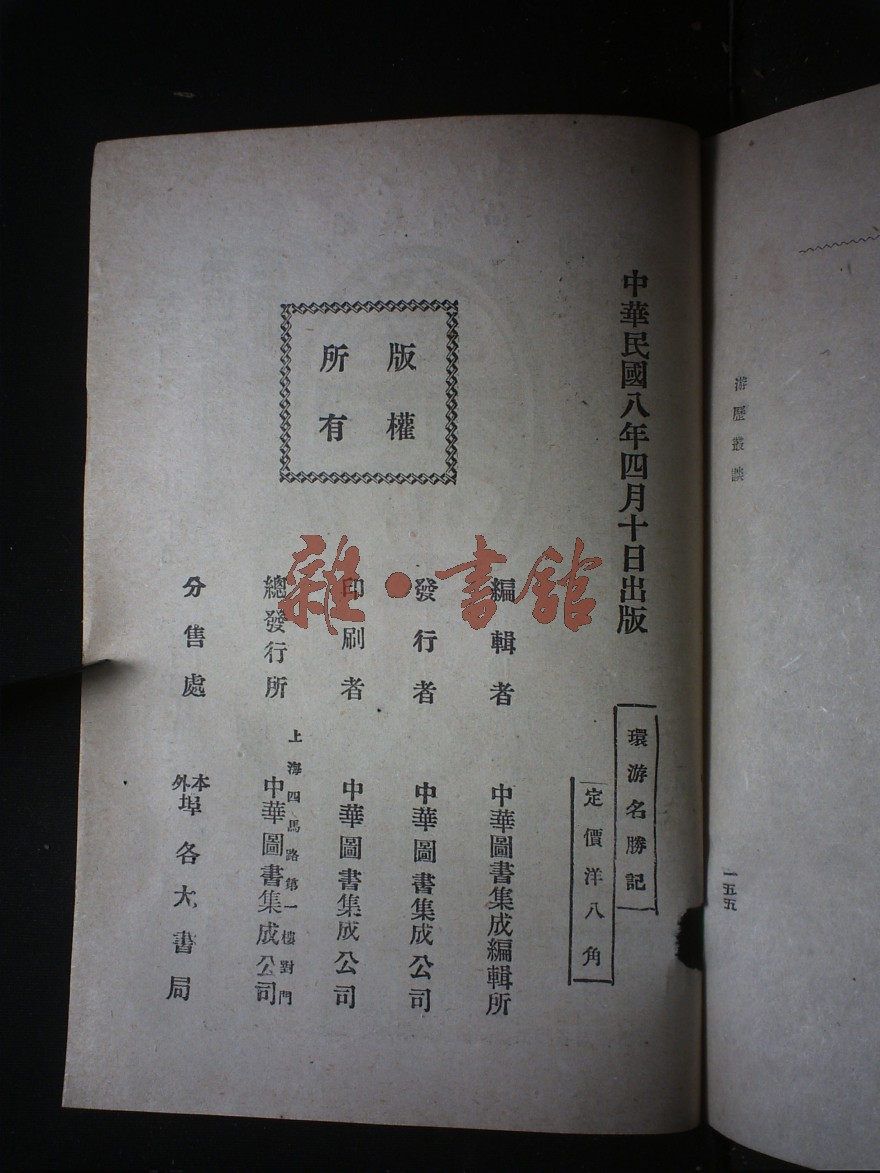 游歷叢談
一五五
中華民國八年四月十日出版
環游名勝記
定價洋八角
版權
所有
編輯者 中華圖書集成編輯所
發行者 中華圖書集成公司
印刷者 中華圖書集成公司
總發行所 上海四馬路第一樓對門 中華圖書集成公司
分售處 本外埠各大書局
雜·書館